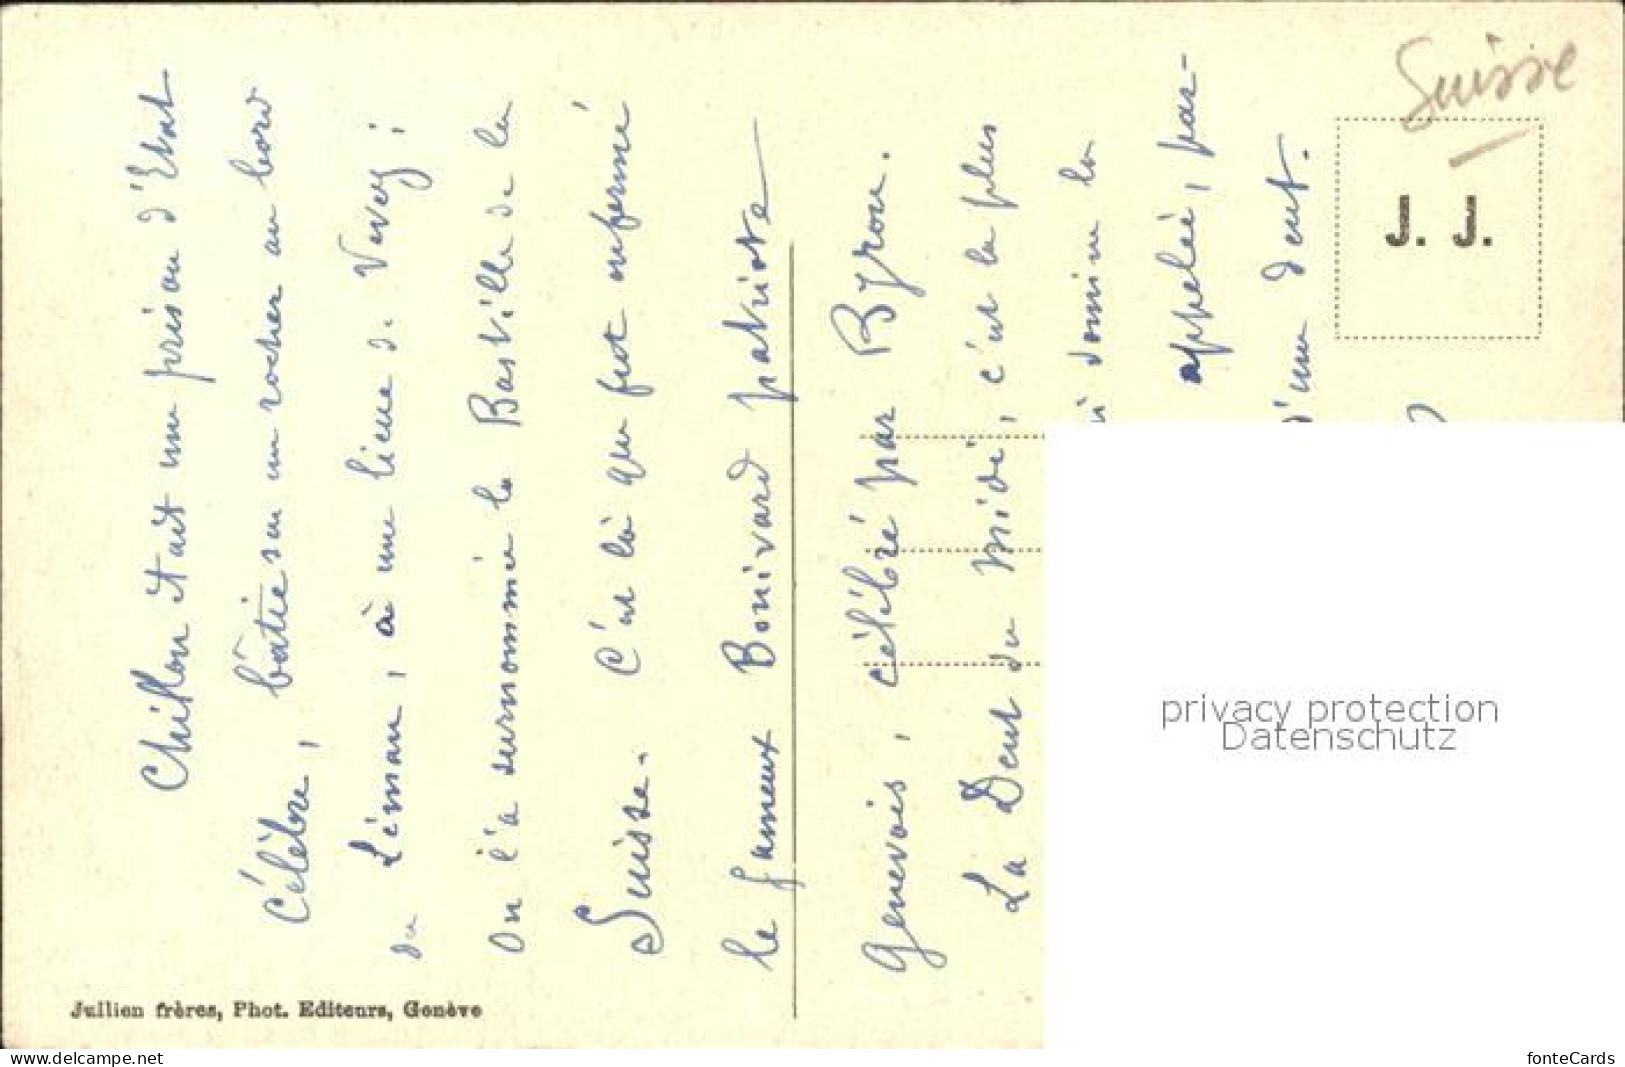 Chillon était une prison d'Etat
célèbre, bâtie sur un rocher au bord
du Léman, à une lieue de Vevey ;
On l'a surnommée la Bastille de la
Suisse. C'est là que fut enfermé
le fameux Bonivard patriote
Genevois, célébré par Byron.
La Dent du Midi, c'est la plus
domine la
appelée, par-
d'une dent.
Suisse
J. J.
Jullien frères, Phot. Editeurs, Genève
privacy protection
Datenschutz
www.delcampe.net
fonteCards